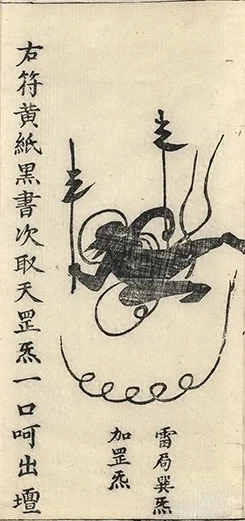 雷局巽炁
加罡炁
右符黃紙黑書次取天罡炁一口呵出壇